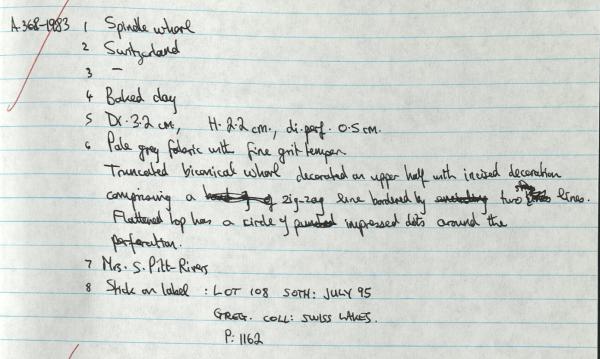 A.368-1983 1 Spindle whorl
2 Switzerland
3 —
4 Baked clay
5 Di. 3.2 cm, H. 2.2 cm., di. perf. 0.5 cm.
6 Pale grey fabric with fine grit temper.
Truncated biconical whorl decorated on upper half with incised decoration
comprising a zig-zag line bordered by two lines.
Flattened top has a circle of impressed dots around the
perforation.
7 Mrs. S. Pitt-Rivers
8 Stick on label : LOT 108 SOTH: JULY 95
GREG. COLL: SWISS LAKES.
P: 1162